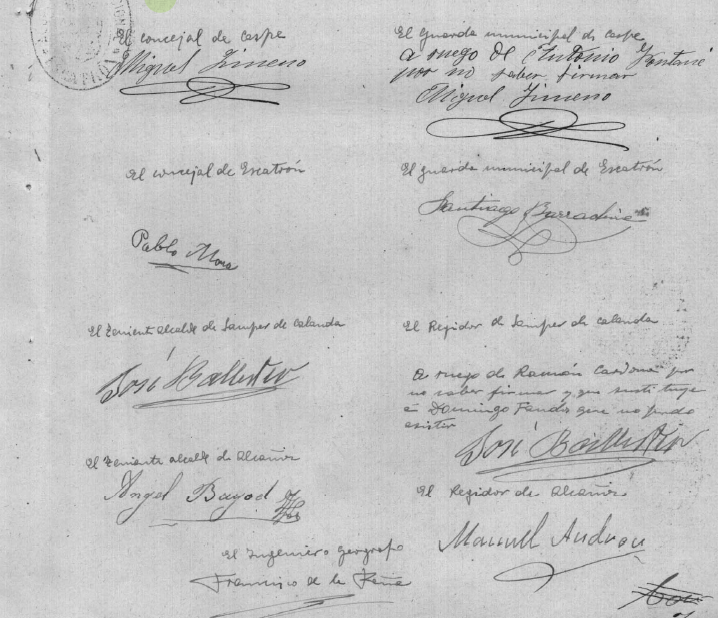 El concejal de Caspe
Miguel Jimeno
El guarda municipal de Caspe
a ruego de Antonio Fontané
por no saber firmar
Miguel Jimeno
El concejal de Escatrón
Pablo Mora
El guarda municipal de Escatrón
Santiago
El Teniente alcalde de Samper de Calanda
José Ballestero
El Regidor de Samper de Calanda
a ruego de Ramón Cardona por
no saber firmar y que sustituye
a Domingo Fandos que no pudo
asistir
José Ballestero
El Teniente alcalde de Alcañiz
Angel Bayod
El Regidor de Alcañiz
Manuel Andreu
El Ingeniero geógrafo
Francisco de la Peña